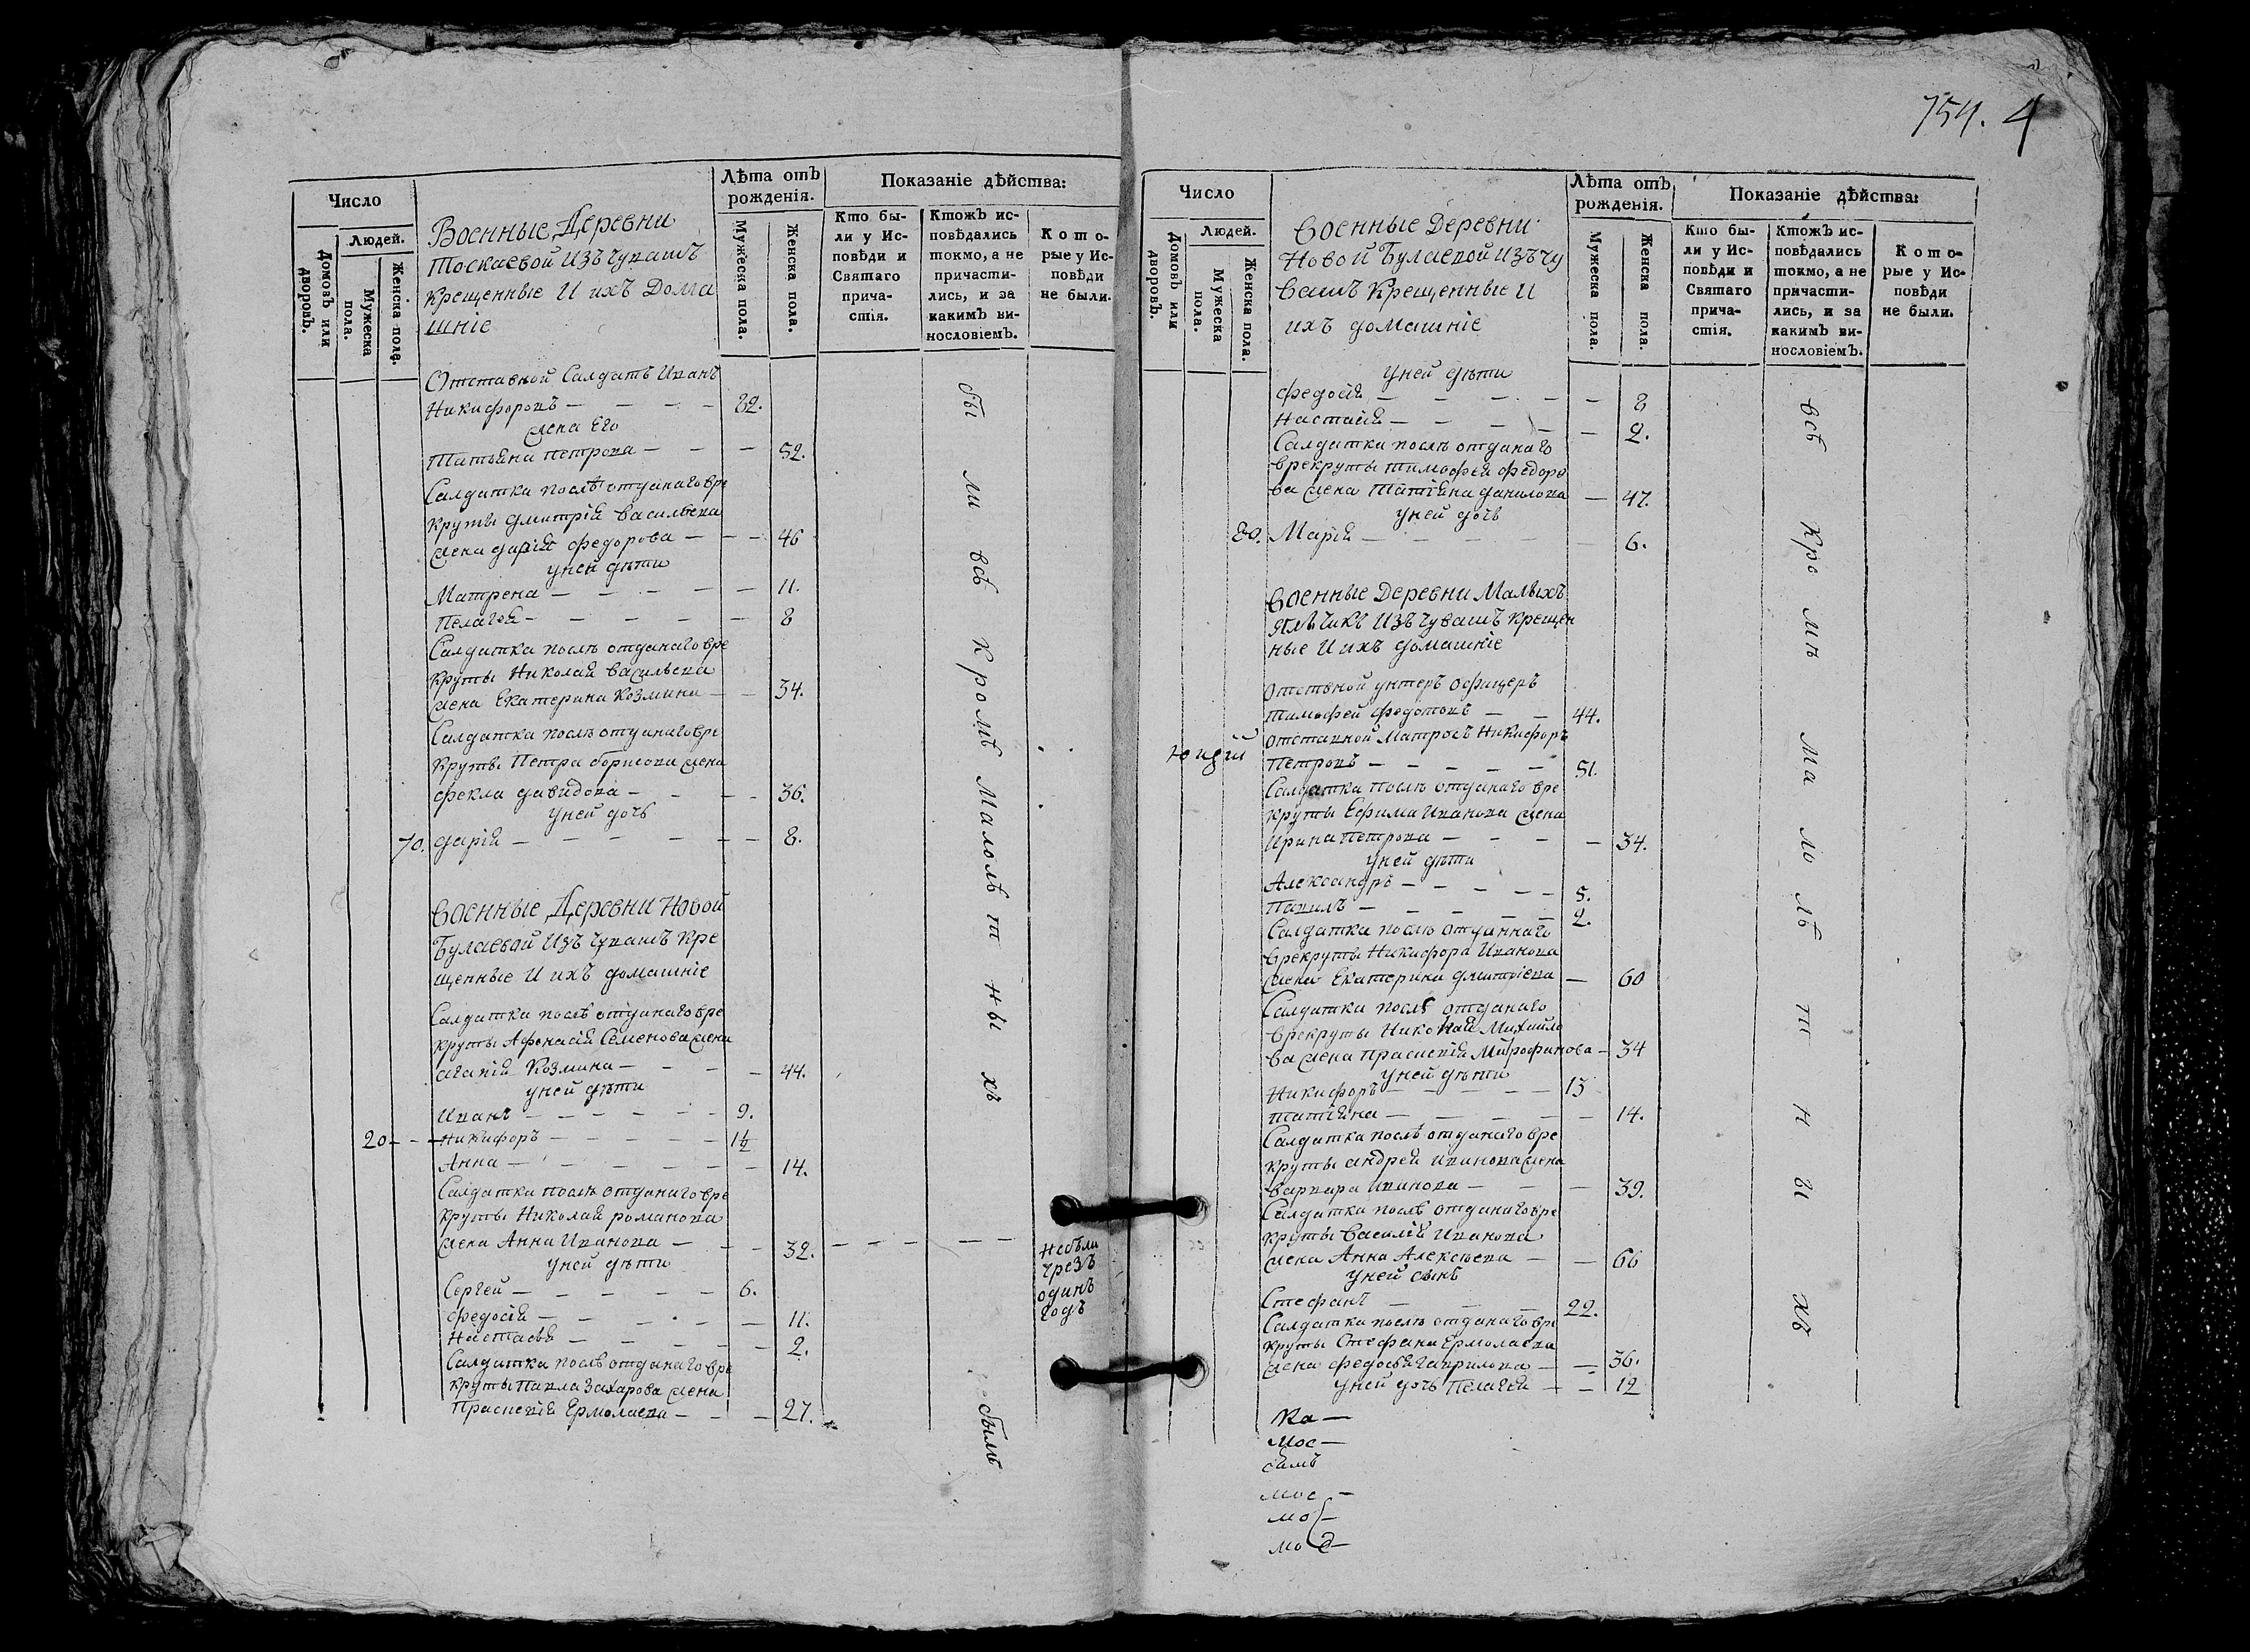 754. 4
Число
Людей.
Домовъ или дворовъ.
Мужеска пола.
Женска пола.
Военные Деревни
Тоскаевой Изъ Чувашъ
Крещенные И ихъ Дома
шніе
Лѣта отъ
рожденія.
Мужеска пола.
Женска пола.
Показаніе дѣйства:
Кто бы-
ли у Ис-
повѣди и
Святаго
прича-
стія.
Ктожъ ис-
повѣдались
токмо, а не
причасти-
лись, и за
какимъ ви-
нословіемъ.
Кото-
рые у Ис-
повѣди
не были.
Отставной Салдатъ Иванъ
Никифоровъ — — — — 82.
жена Его
Татьяна петрова — — — 52.
Салдатка послѣ отданаго вре
круты дмитрія васильева
жена дарія федорова — — — 46
у ней дѣти
Матрена — — — — — 11.
Пелагея — — — — — 8
Салдатка послѣ отданаго вре
круты Николая васильева
жена Екатерина Козмина — — 34.
Салдатка послѣ отданаго вре
круты Петра борисова жена
фекла давидова — — — — 36.
у ней дочь
70. дарія — — — — — — 8.
Военные Деревни Новой
Булаевой Изъ Чувашъ Кре
щенные И ихъ домашніе
Салдатка послѣ отданаго вре
круты Афонасія Семенова жена
агапія Козмина — — — — 44.
у ней дѣти
Иванъ — — — — — — 9.
20 — — Никифоръ — — — — — 1½
Анна — — — — — — 14.
Салдатка послѣ отданаго вре
круты Николая романова
жена Анна Иванова — — — 32. — — — — —
у ней дѣти
Сергей — — — — — 6.
федосія — — — — — 11.
Настасья — — — — — 2.
Салдатка послѣ отданаго вре
круты Павла Захарова жена
Прасковія Ермолаева — — — 27.
бы ли всѣ кромѣ малолѣтныхъ
Небыла
чрезъ
одинъ
годъ
былъ
Число
Людей.
Домовъ или дворовъ.
Мужеска пола.
Женска пола.
Военные Деревни
Новой Булаевой Изъ Чу
вашъ Крещенные И
ихъ домашніе
Лѣта отъ
рожденія.
Мужеска пола.
Женска пола.
Показаніе дѣйства:
Кто бы-
ли у Ис-
повѣди и
Святаго
прича-
стія.
Ктожъ ис-
повѣдались
токмо, а не
причасти-
лись, и за
какимъ ви-
нословіемъ.
Кото-
рые у Ис-
повѣди
не были.
у ней дѣти
федосія — — — — — — 8
Настасія — — — — — 2.
Салдатка послѣ отданаго
врекруты тимофея федоро
ва жена Татіяна данилова — 47.
у ней дочь
80. Марія — — — — — 6.
Военные Деревни Малыхъ
Ялъчикъ Изъ Чувашъ Крещен
ные И ихъ домашніе
отствной унтеръ офицеръ
тимофей федотовъ — — 44.
отставной Матросъ Никифоръ
Петровъ — — — — — 51.
Салдатка послѣ отданаго вре
круты Ефима Иванова жена
Ирина Петрова — — — — 34.
у ней дѣти
Александръ — — — — — 5.
Павилъ — — — — — 2.
Салдатка послѣ отданнаго
врекруты Никифора Иванова
жена Екатерина дмитріева — 60
Салдатка послѣ отданаго
врекруты Николая Михаило
ва жена Прасковія Митрофанова — 34
у ней дѣти
Никифоръ — — — — — 13
татіяна — — — — — 14.
Салдатка послѣ отданаго вре
круты андрея иванова жена
варвара иванова — — — 39.
Салдатка послѣ отданаго вре
круты Василія Иванова
жена Анна Алексѣева — — 66
у ней сынъ
Стефанъ — — — — 22.
Салдатка послѣ отданаго вре
круты Стефана Ермолаева
жена федосья гаврилова — — 36.
у ней дочь Пелагея — — 12
всѣ Кро мѣ ма ло лѣ т н ы хъ
Ка —
мос —
самъ
мос —
мо —
мо —